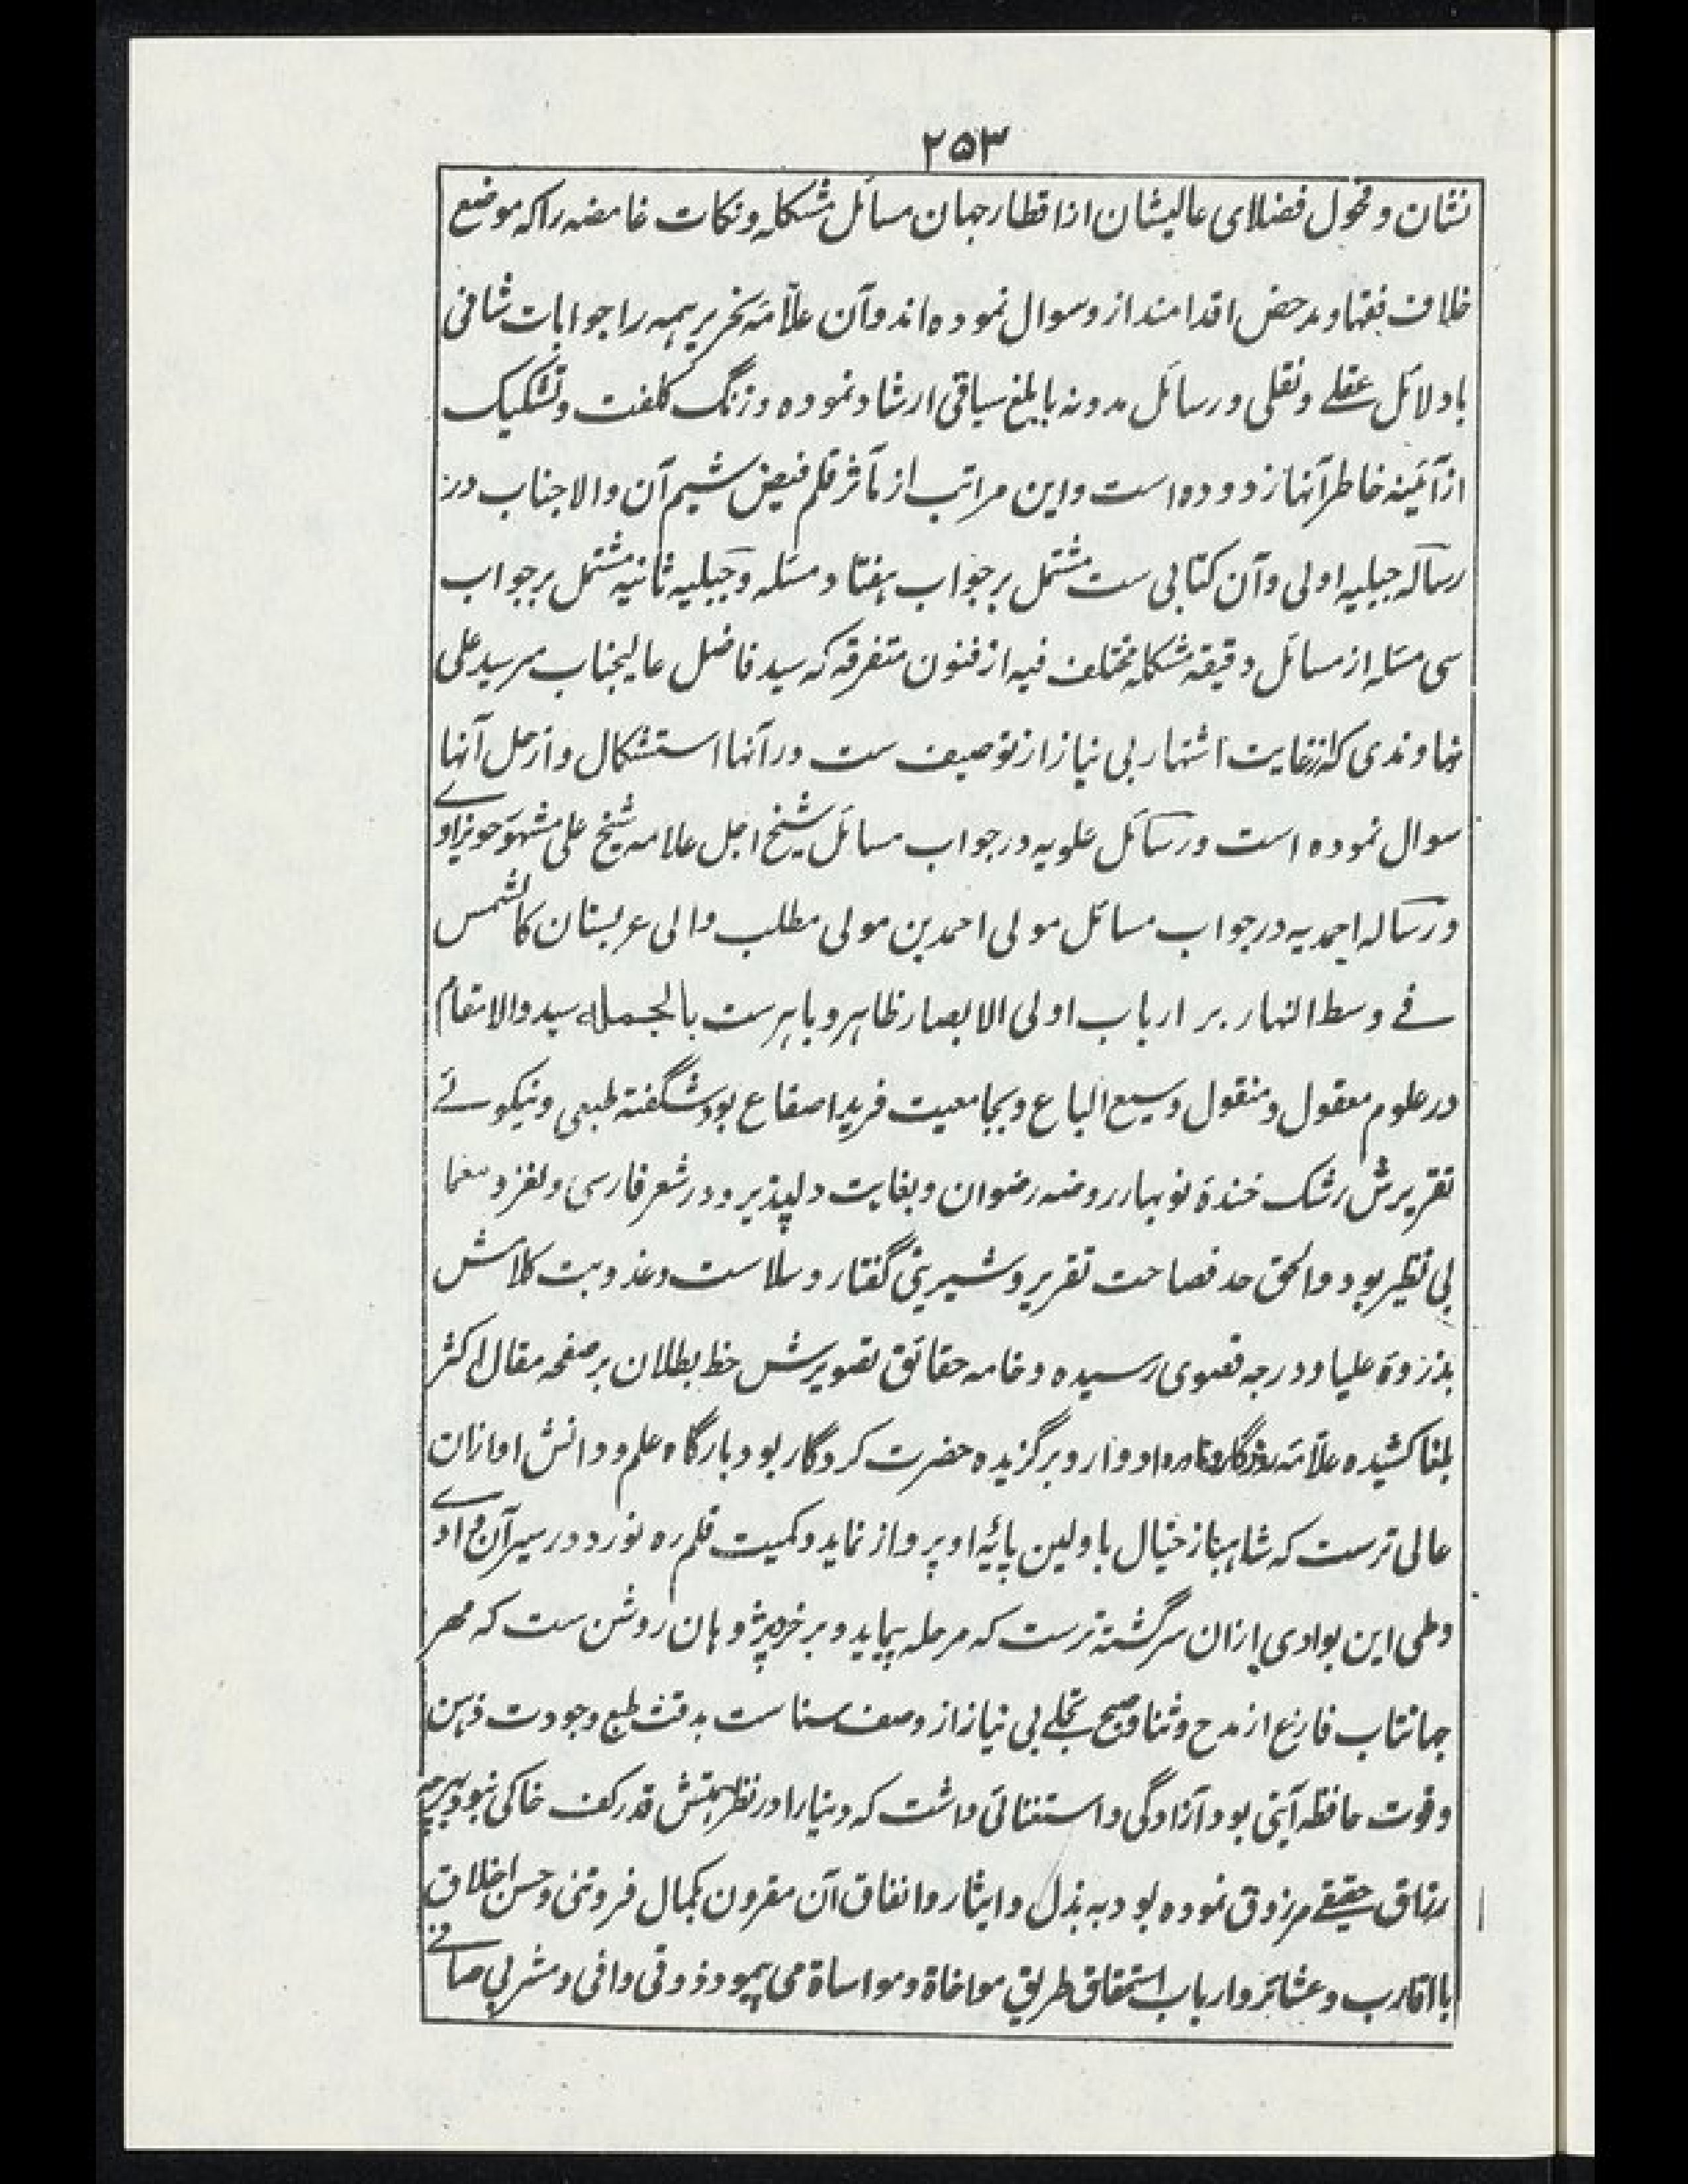 ۲۵۳
نشان و فحول فضلای عالیشان از اقطار جهان مسائل مشکله و نکات غامضه را که موضع
خلاف فقها و مدحض اقدامند از و سوال نموده اند و آن علّامه نحریر همه را جوابات شافی
با دلائل عقلے و نقلی و رسائل مدونه با بلغ سیاقی ارشاد نموده و زنگ کلفت و تشکیک
از آئینه خاطر آنها زدوده است و این مراتب از مآثر قلم فیض شیم آن والا جناب در
رساله جبلیه اولی و آن کتابی ست مشتمل بر جواب هفتاد مسئله و جبلیه ثانیه مشتمل بر جواب
سی مسئله از مسائل دقیقه مشکله مختلف فیه از فنون متفرقه که سید فاضل عالیجناب میر سید علی
نهاوندی که از غایت اشتهار بی نیاز از توصیف ست در آنها استشکال و از حل آنها
سوال نموده است و رسائل علویه در جواب مسائل شیخ اجل علامه شیخ علی مشهور حویزاوے
و رساله احمدیه در جواب مسائل مولی احمد بن مولی مطلب والی عربستان کالشمس
فے وسط النهار بر ارباب اولی الابصار ظاهر و باهرست بالجمله سید والا مقام
در علوم معقول و منقول وسیع الباع و بجامعیت فرید اصقاع بود شگفته طبعی و نیکوئے
تقریرش رشک خندهٔ نوبهار روضه رضوان و بغایت دلپذیر و در شعر فارسی و لغز و معما
بی نظیر بود و الحق حد فصاحت تقریر و شیرینی گفتار و سلاست و عذوبت کلامش
بذروهٔ علیا و درجه قصوی رسیده و خامه حقائق تصویرش خط بطلان بر صفحه مقال اکثر
بلغا کشیده علّامه روزگار و نادره ادوار و برگزیده حضرت کردگار بود بارگاه علم و دانش او ازان
عالی ترست که شاهباز خیال باولین پایهٔ او پرواز نماید و کمیت قلم ره نورد در سیر آن وادے
و طی این بوادی ازان سرگشته ترست که مرحله پیماید و بر خرد پژوهان روشن ست که مهر
جهانتاب فارغ از مدح و ثنا و صبح تجلے بی نیاز از وصف سناست بدقت طبع و جودت ذهن
و قوت حافظه آیتی بود آزادگی و استغنائی داشت که دنیا را در نظر همتش قدر کف خاکی نبود هرچه
رزاق حقیقے مرزوق نموده بود به بذل و ایثار و انفاق آن مقرون بکمال فروتنی و حسن اخلاق
با اقارب و عشائر و ارباب استحقاق طریق مواخاة و مواساة می پیمود ذوقی وافی و مشربی صافے